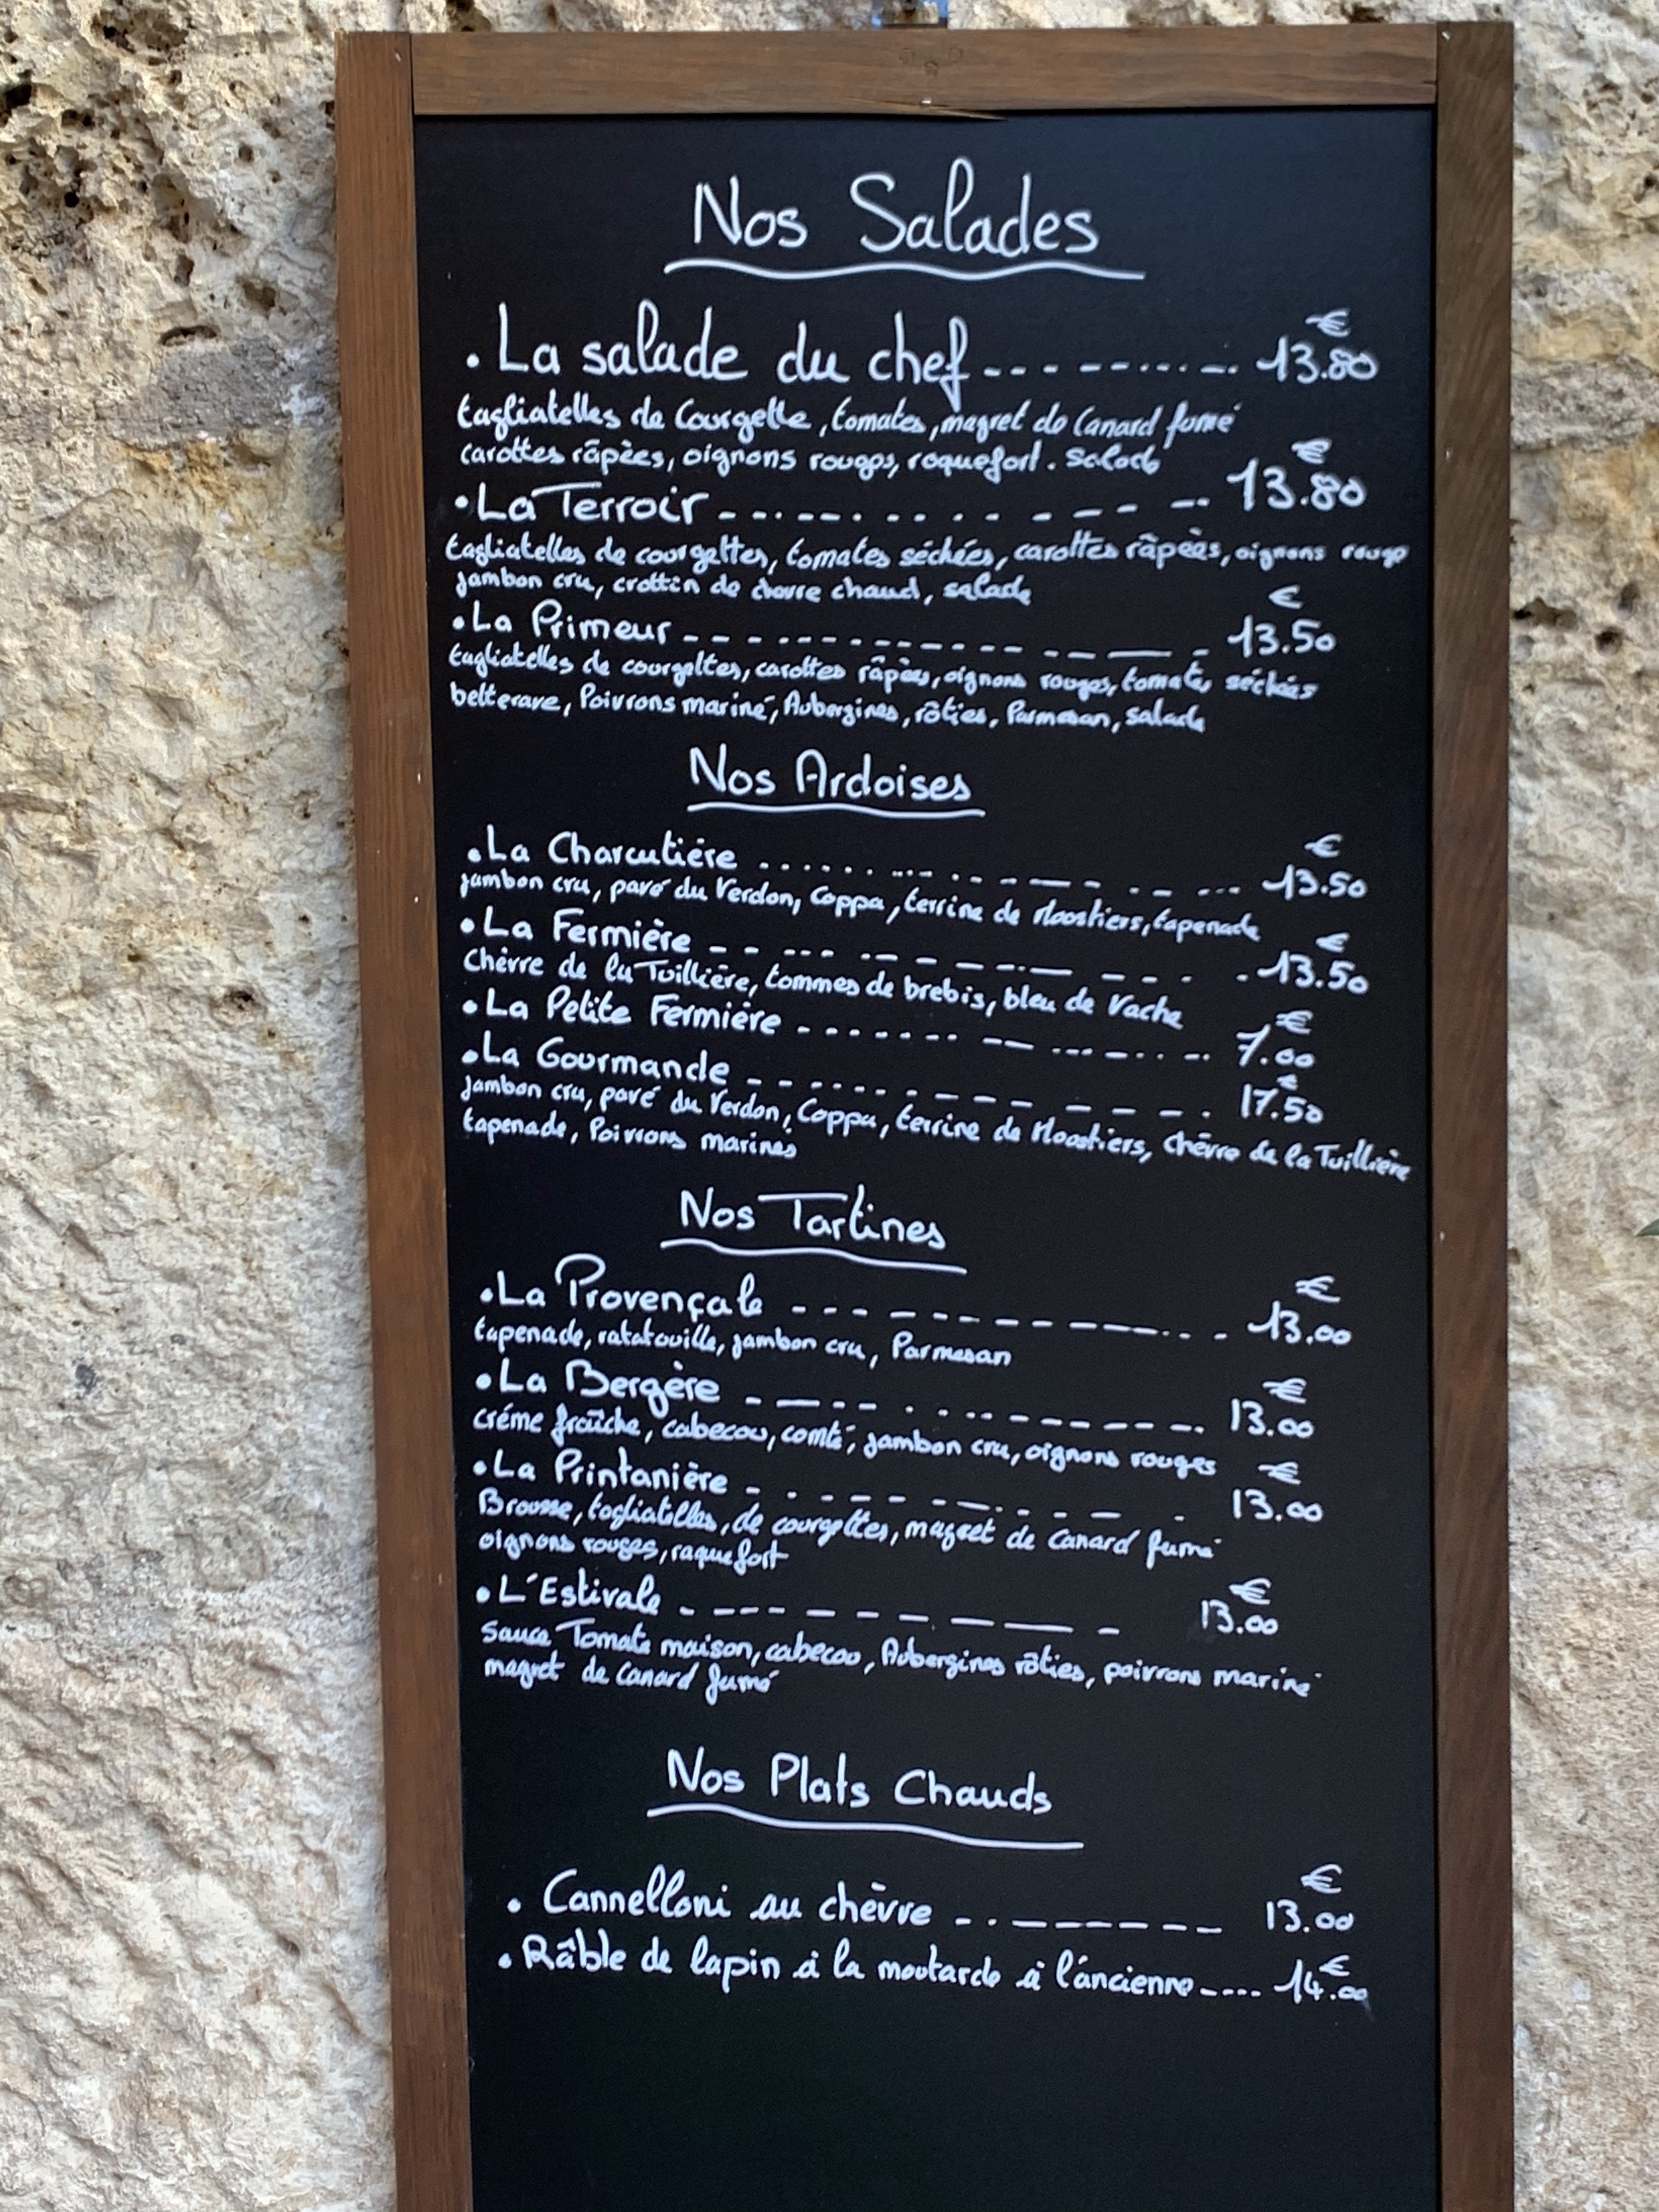 Nos Salades
€
. La salade du chef - - - - - - - - - - - 13.80
tagliatelles de Courgette, tomates, magret de Canard fumé
carottes râpèes, oignons rouges, roquefort. Salade
€
. La Terroir - - - - - - - - - - - - - - 13.80
tagliatelles de courgettes, tomates séchées, carottes râpèes, oignons rouge
jambon cru, crottin de chevre chaud, salade
€
. La Primeur - - - - - - - - - - - - - - 13.50
tagliatelles de courgettes, carottes râpèes, oignons rouges, tomates séchées
betterave, Poivrons mariné, Aubergines, rôties, Parmesan, salade
Nos Ardoises
€
. La Charcutière . . . . . . . . . . . . . . . . 13.50
jambon cru, pavé du Verdon, Coppa, terrine de Moostiers, tapenade
€
. La Fermière - - - - - - - - - - - - - - - 13.50
Chèvre de la Tuillière, tommes de brebis, bleu de Vache
€
. La Petite Fermière - - - - - - - - - - - - - 7.00
€
. La Gourmande - - - - - - - - - - - - - - 17.50
jambon cru, pavé du Verdon, Coppa, terrine de Moostiers, Chèvre de la Tuillière
tapenade, Poivrons marines
Nos Tartines
€
. La Provençale - - - - - - - - - - - - - - 13.00
tapenade, ratatouille, jambon cru, Parmesan
€
. La Bergère - - - - - - - - - - - - - - - 13.00
créme fraîche, cabecou, comté, jambon cru, oignons rouges
€
. La Printanière - - - - - - - - - - - - - 13.00
Brousse, tagliatelles, de courgettes, magret de Canard fumé
oignons rouges, roquefort
€
. L'Estivale - - - - - - - - - - - 13.00
Sauce Tomate maison, cabecou, Aubergines rôties, poivrons mariné
magret de Canard fumé
Nos Plats Chauds
€
. Cannelloni au chèvre - - - - - - - - - 13.00
€
. Râble de lapin à la moutarde à l'ancienne - - - - 14.00